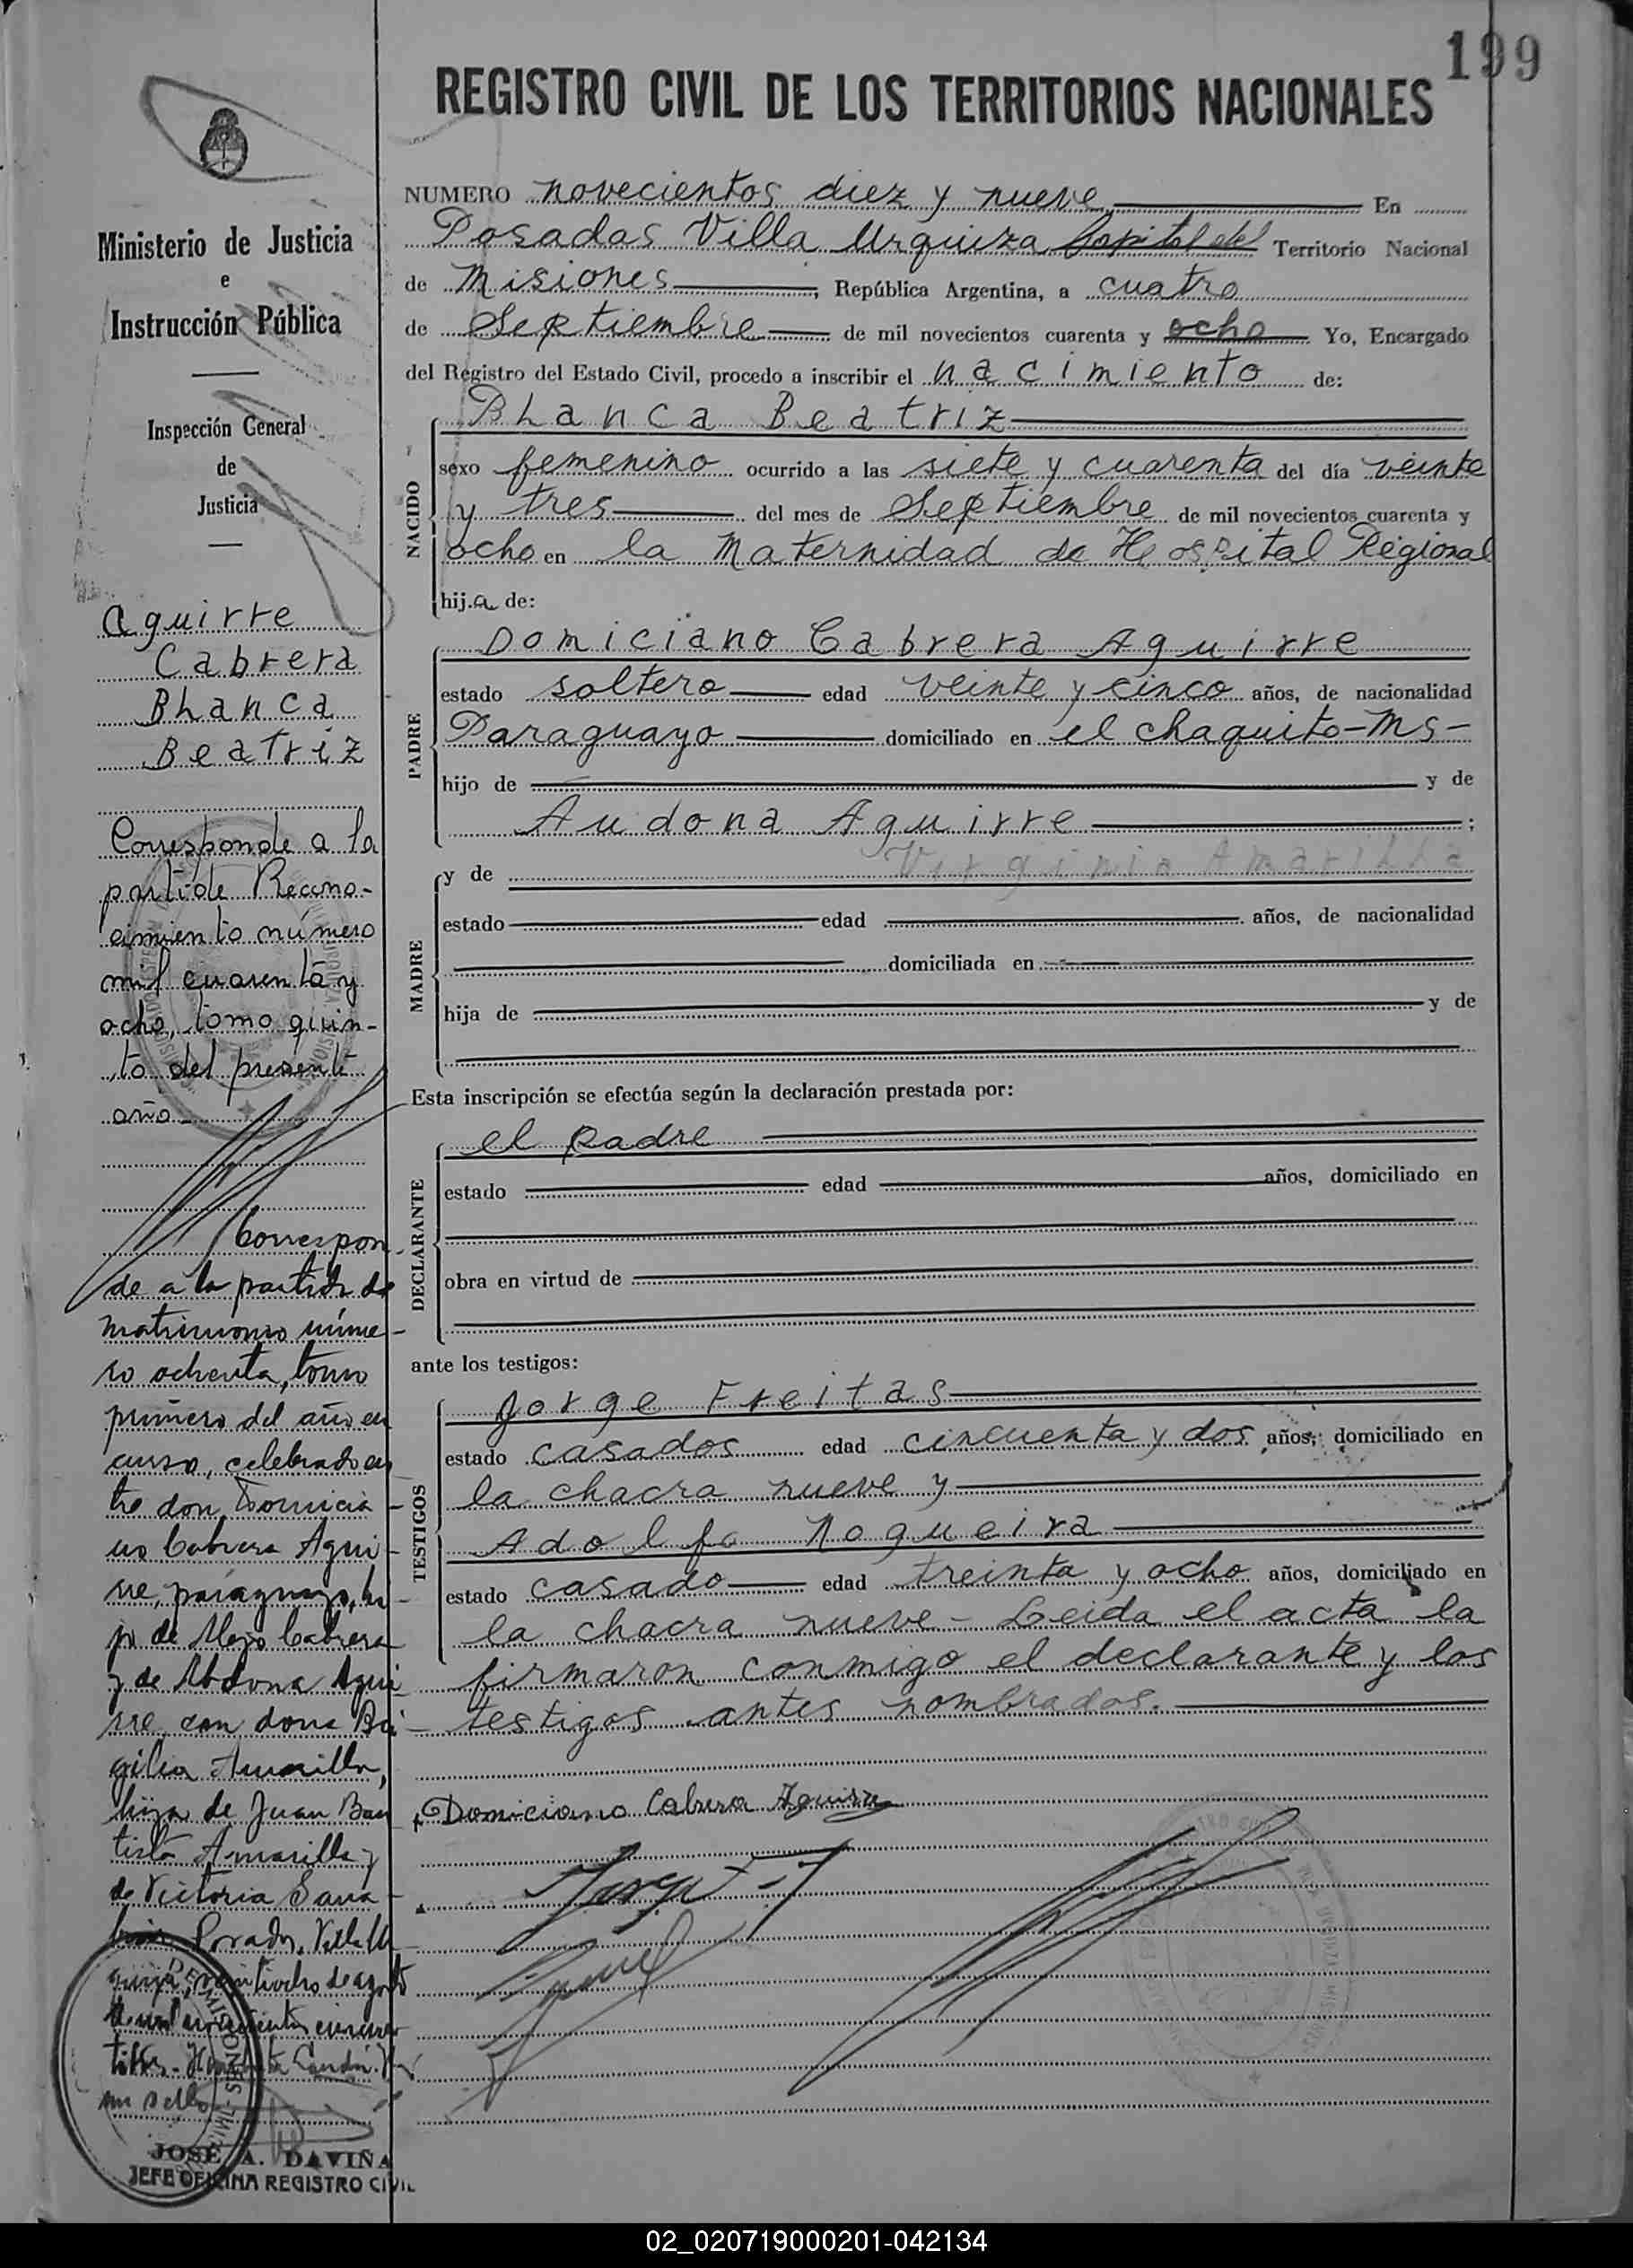 199
REGISTRO CIVIL DE LOS TERRITORIOS NACIONALES
Ministerio de Justicia
e
Instrucción Pública
Inspección General
de
Justicia
Aguirre
Cabrera
Blanca
Beatriz
Corresponde a la
partida Recono-
cimiento número
mil cuarenta y
ocho, tomo quin-
to del presente
año
Correspon-
de a la partida de
matrimonio núme-
ro ochenta, tomo
primero del año en
curso, celebrado en-
tre don Domicia-
no Cabrera Agui-
rre, paraguayo, hi-
jo de Alejo Cabrera
y de Abdona Agui-
rre, con doña Bri-
gilia Amarilla,
hija de Juan Bau
tista Amarilla y
de Victoria Sana-
bria. Posadas, Villa U
quiza, veintiocho de agosto
de mil novecientos cincuen
JOSÉ A. DAVIÑA
JEFE OFICINA REGISTRO CIVIL
NUMERO novecientos diez y nueve En
Posadas Villa Urquiza Capital del Territorio Nacional
de Misiones, República Argentina, a cuatro
de Septiembre de mil novecientos cuarenta y ocho Yo, Encargado
del Registro del Estado Civil, procedo a inscribir el nacimiento de:
NACIDO
Blanca Beatriz
sexo femenino ocurrido a las siete y cuarenta del día veinte
y tres del mes de Septiembre de mil novecientos cuarenta y
ocho en la Maternidad de Hospital Regional
hij.a de:
PADRE
Domiciano Cabrera Aguirre
estado soltero edad veinte y cinco años, de nacionalidad
Paraguayo domiciliado en el chaquito-Ms-
hijo de y de
Audona Aguirre ;
MADRE
y de Virginia Amarilla
estado edad años, de nacionalidad
domiciliada en
hija de y de
Esta inscripción se efectúa según la declaración prestada por:
DECLARANTE
el padre
estado edad años, domiciliado en
obra en virtud de
ante los testigos:
TESTIGOS
Jorge Freitas
estado casados edad cincuenta y dos años, domiciliado en
la chacra nueve y
Adolfo Nogueira
estado casado edad treinta y ocho años, domiciliado en
la chacra nueve - Leida el acta la
firmaron conmigo el declarante y los
testigos antes nombrados.
Domiciano Cabrera Aguirre
02_020719000201-042134